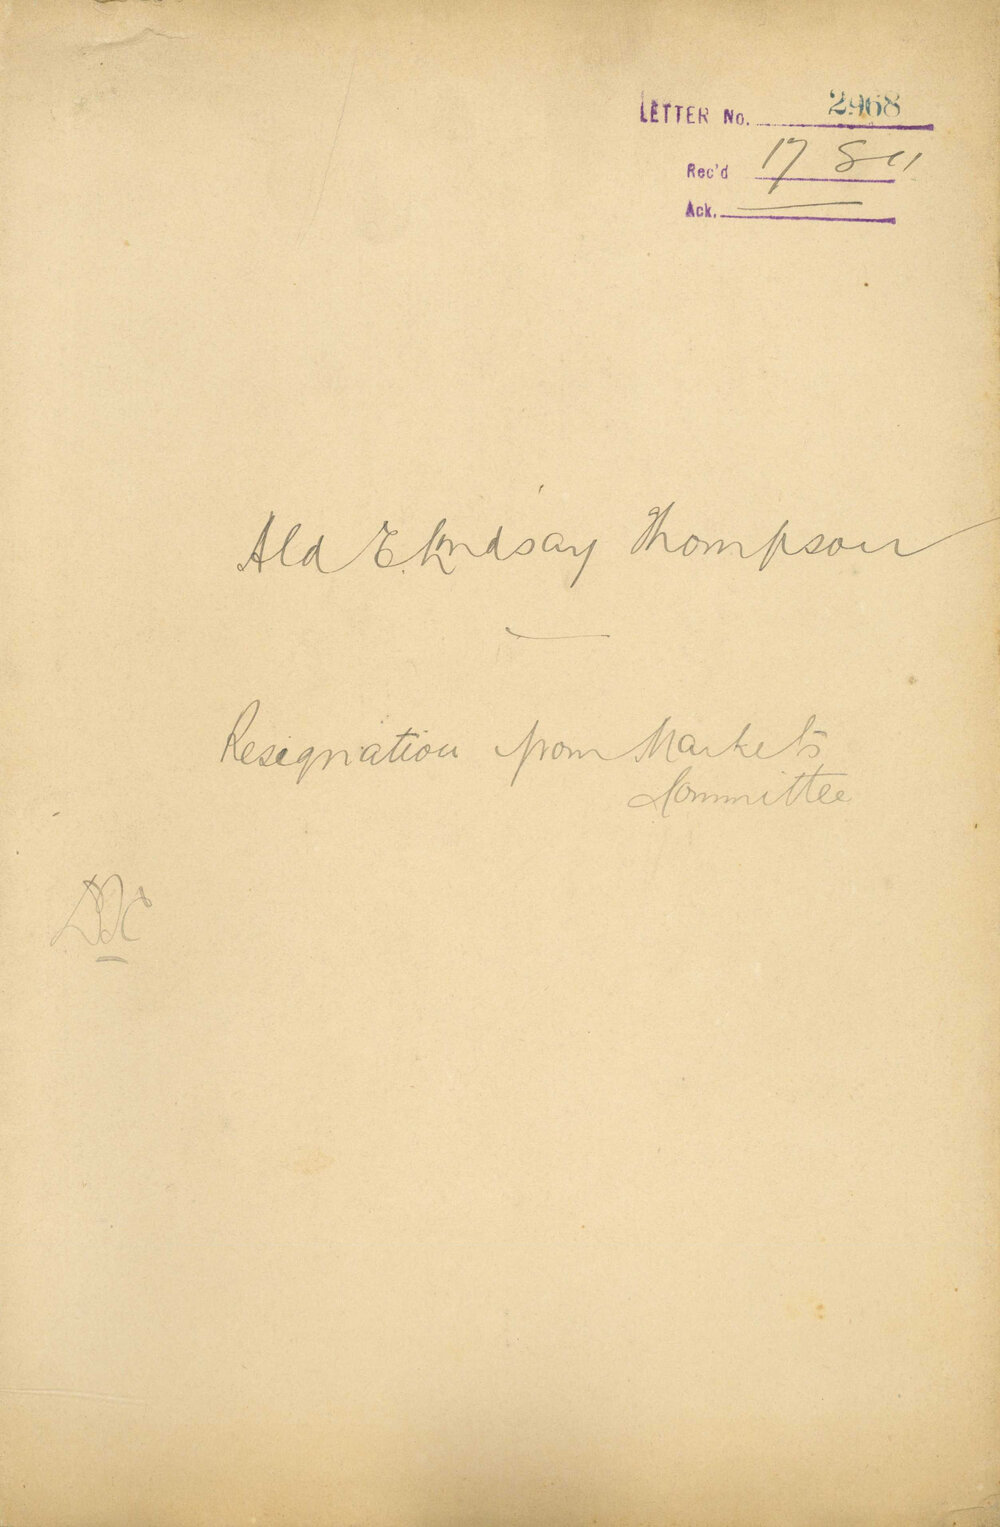 LETTER No. 2968
Rec'd 17 8 11
Ack.
Ald E. Lindsay Thompson
Resignation from Markets
Committee